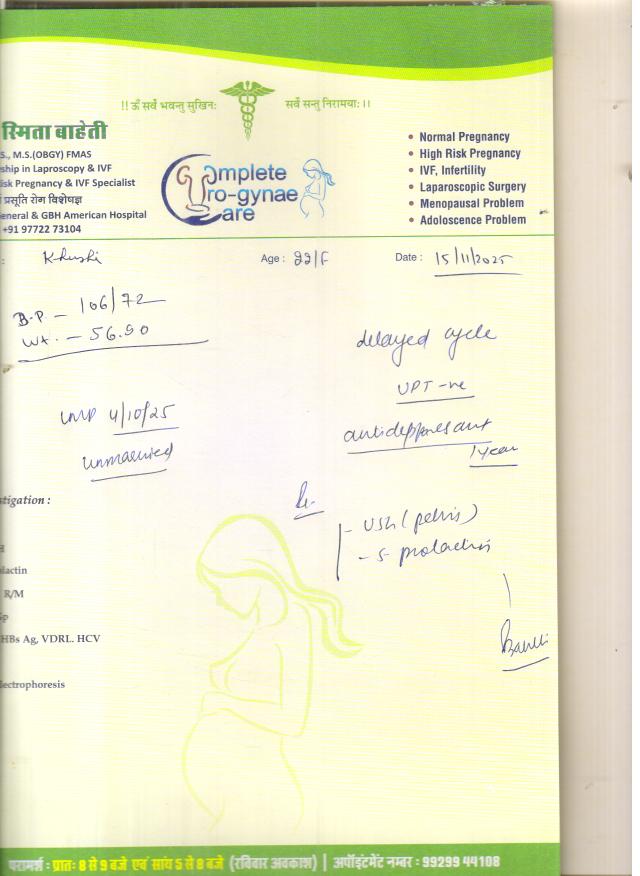 !! ॐ सर्वे भवन्तु सुखिनः सर्वे सन्तु निरामयाः ।।
स्मिता बाहेती
S., M.S.(OBGY) FMAS
ship in Laproscopy & IVF
isk Pregnancy & IVF Specialist
प्रसूति रोग विशेषज्ञ
General & GBH American Hospital
+91 97722 73104
Complete
Uro-gynae
Care
• Normal Pregnancy
• High Risk Pregnancy
• IVF, Infertility
• Laparoscopic Surgery
• Menopausal Problem
• Adoloscence Problem
: Khushi Age : 22/F Date : 15/11/2025
B.P. – 106/72
Wt. – 56.90
delayed cycle
UPT -ve
LMP 4/10/25
antidepressant
1 year
unmarried
stigation :
- USG (pelvis)
- S. prolactin
H
lactin
R/M
Sp
HBs Ag, VDRL. HCV
lectrophoresis
परामर्श : प्रातः 8 से 9 बजे एवं सांय 5 से 8 बजे (रविवार अवकाश) | अपॉइंटमेंट नम्बर : 99299 44108